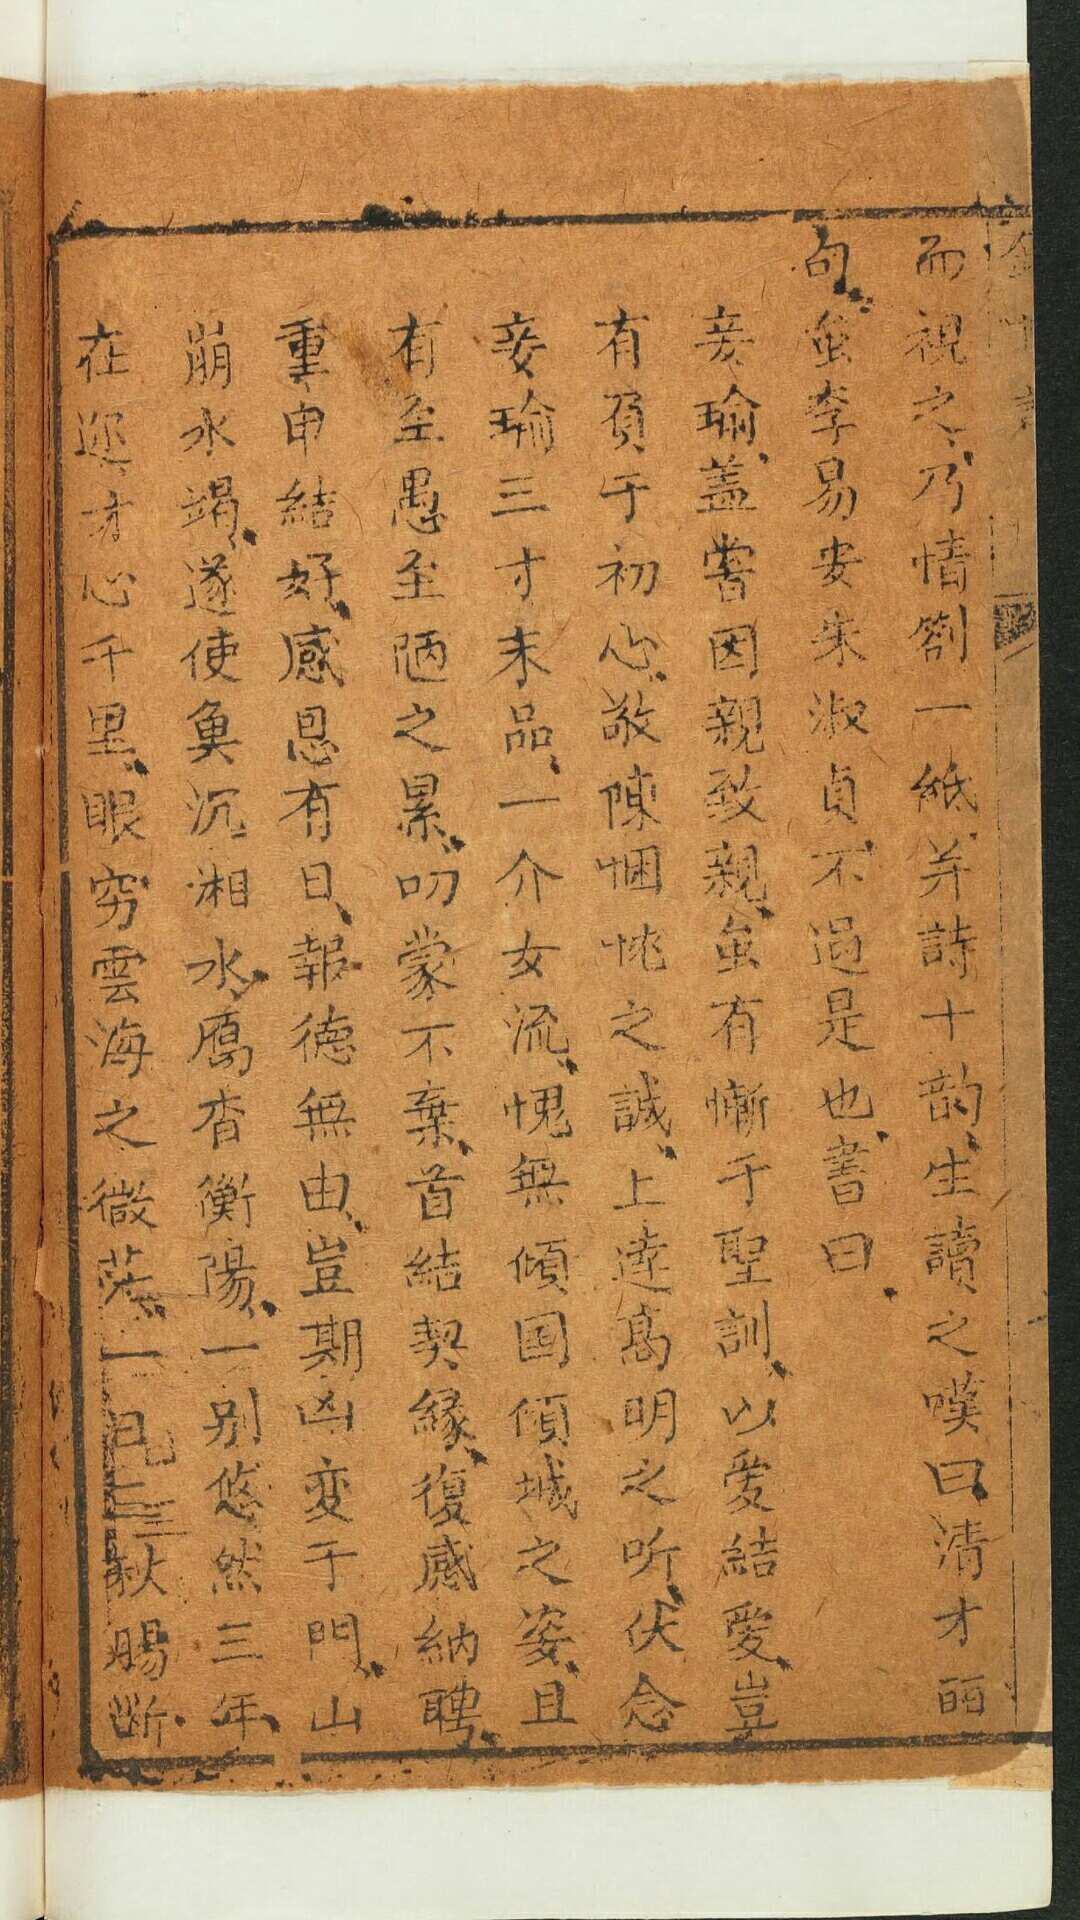 而視之乃情劄一紙并詩十韵生讀之嘆曰清才丽
句虽李易安朱淑貞不過是也書曰
妾瑜蓋嘗因親致親虽有慚于聖訓以愛結愛豈
有負于初心敬陳悃愊之誠上達髙明之听伏念
妾瑜三寸末品一介女流愧無傾国傾城之姿且
有至愚至陋之累叨蒙不棄首結契緣復感納聘
重申結好感恩有日報德無由豈期凶变于門山
崩水竭遂使魚沉湘水鴈杳衡陽一别悠然三年
在迩寸心千里眼穷雲海之微茫一日三秋腸断